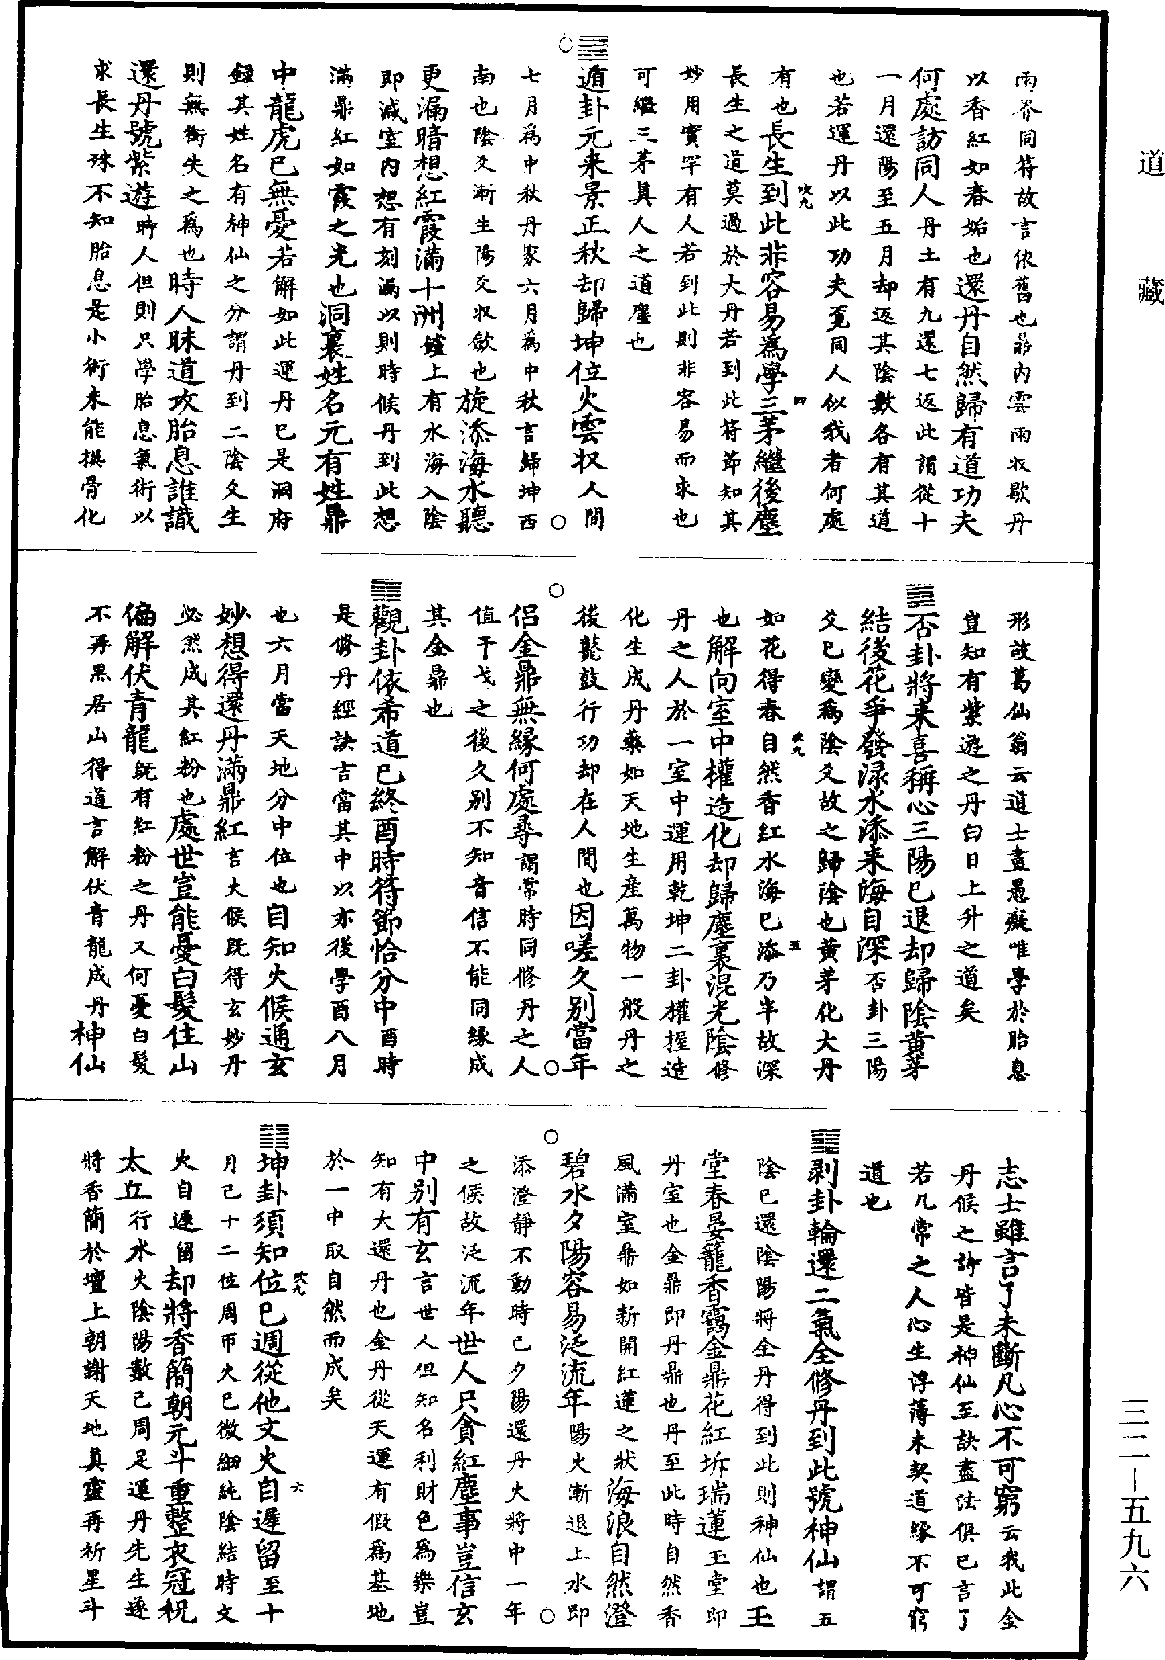 道藏
雨各同符故言依舊也鼎內雲雨收歇丹
以香紅如春姤也還丹自然歸有道功夫
何處訪同人丹土有九還七返此謂從十
一月還陽至五月却返其陰數各有其道
也若運丹以此功夫覓同人似我者何處
有也長生到此非容易為學三茅繼後塵
長生之道莫過於大丹若到此符節知其
妙用實罕有人若到此則非容易而求也
可繼三茅真人之道塵也
遁卦元来景正秋却歸坤位火雲收人間
七月為中秋丹家六月為中秋言歸坤西
南也陰爻漸生陽爻收斂也旋添海水聽
更漏暗想紅霞滿十洲鑪上有水海入陰
即減室内想有刻漏以則時候丹到此想
滿鼎紅如霞之光也洞裏姓名元有姓鼎
中龍虎已無憂若解如此運丹已是洞府
録其姓名有神仙之分謂丹到二陰爻生
則無衝失之為也時人昧道攻胎息誰識
還丹號紫遊時人但則只學胎息氣術以
求長生殊不知胎息是小術未能換骨化
形故葛仙翁云道士盡愚癡唯學於胎息
豈知有紫遊之丹白日上升之道矣
否卦將来喜稱心三陽已退却歸陰黃芽
結後花爭發渌水添来海自深否卦三陽
爻已變為陰爻故之歸陰也黃芽化大丹
如花得春自然香紅水海已添乃半故深
也解向室中權造化却歸塵裏混光陰修
丹之人於一室中運用乾坤二卦權握造
化生成丹藥如天地生産萬物一般丹之
後龍鼓行功却在人間也因嗟久别當年
侣金鼎無緣何處尋謂常時同修丹之人
值干戈之後久别不知音信不能同緣成
其金鼎也
觀卦依希道已終酉時待節恰分中酉時
是修丹經訣言當其中以亦後學酉八月
也六月當天地分中位也自知火候通玄
妙想得還丹滿鼎紅言大候既得玄妙丹
必然成其紅粉也處世豈能憂白髮住山
偏解伏青龍既有紅粉之丹又何憂白髮
不再黑居山得道言解伏青龍成丹神仙
志士雖言了未斷凡心不可窮云我此金
丹候之訣皆是神仙至訣盡法俱已言了
若凡常之人心生浮薄未契道縁不可窮
道也
剥卦輪還二氣全修丹到此號神仙謂五
陰已還陰陽將全丹得到此則神仙也玉
堂春晏籠香靄金鼎花紅坼瑞蓮玉堂即
丹室也金鼎即丹鼎也丹至此時自然香
風滿室鼎如新開紅蓮之狀海浪自然澄
碧水夕陽容易泛流年陽火漸退上水即
添澄靜不動時已夕陽還丹火將中一年
之候故泛流年世人只貪紅塵事豈信玄
中别有玄言世人但知名利財色為樂豈
知有大還丹也金丹從天運有假為基地
於一中取自然而成矣
坤卦須知位已週從他文火自遲留至十
月已十二位周帀火已微細純陰結時文
火自遲留却將香簡朝元斗重整衣冠祝
太丘行水火陰陽數已周足運丹先生逐
將香簡於壇上朝謝天地真靈再祈星斗
三二—五九六